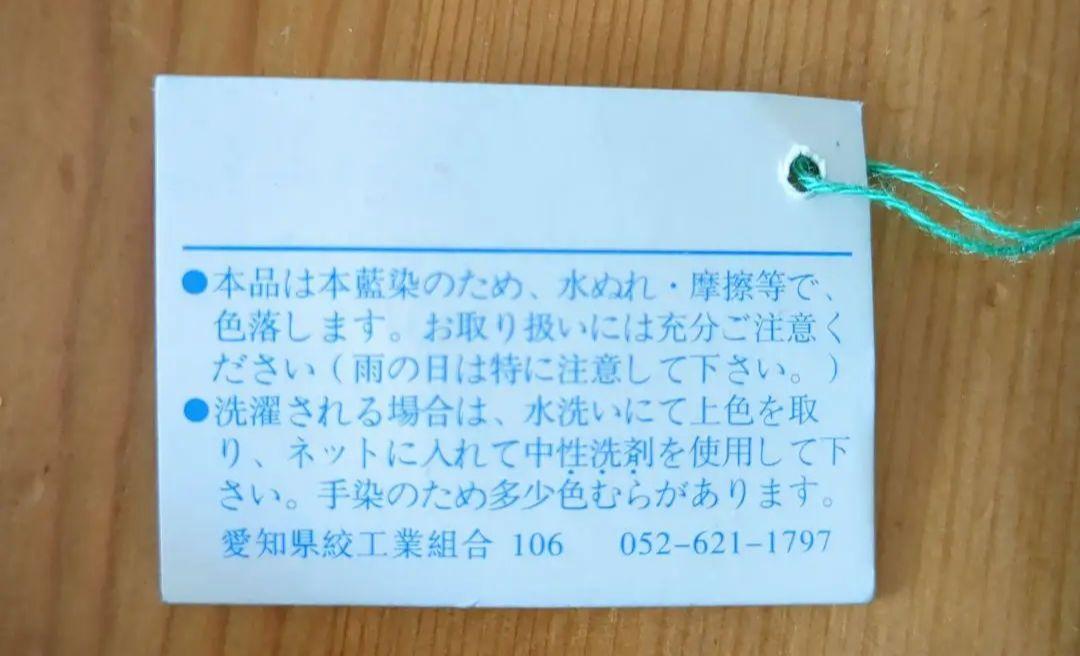 ●本品は本藍染のため、水ぬれ・摩擦等で、
色落します。お取り扱いには充分ご注意く
ださい（雨の日は特に注意して下さい。）
●洗濯される場合は、水洗いにて上色を取
り、ネットに入れて中性洗剤を使用して下
さい。手染のため多少色むらがあります。
愛知県絞工業組合 106 052-621-1797